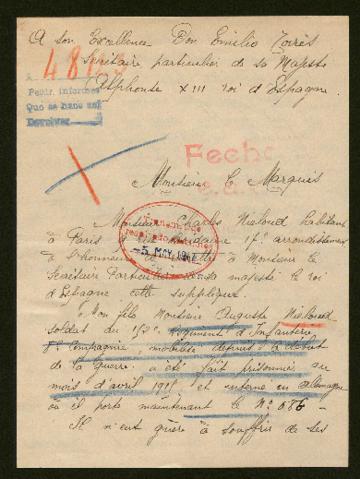 A son Excellence Don Emilio Torrès
Secrétaire particulier de sa Majesté
Alphonse XIII roi d'Espagne.
Pedir informes
Que se hace así
Devolver
Fecha
Monsieur le Marquis
Monsieur Charles Nieloud habitant
à Paris 17e arrondissement
à l'honneur de à Monsieur le
Secrétaire Particulier de sa majesté le roi
d'Espagne cette supplique.
"Mon fils Monsieur Auguste Nieloud
soldat du 153e régiment d'Infanterie,
Compagnie mobilisé depuis le début
de la guerre, a été fait prisonnier au
mois d'avril 1915 et interné en Allemagne
où il porte maintenant le No 686 -
Il n'eut guère à souffrir de ses